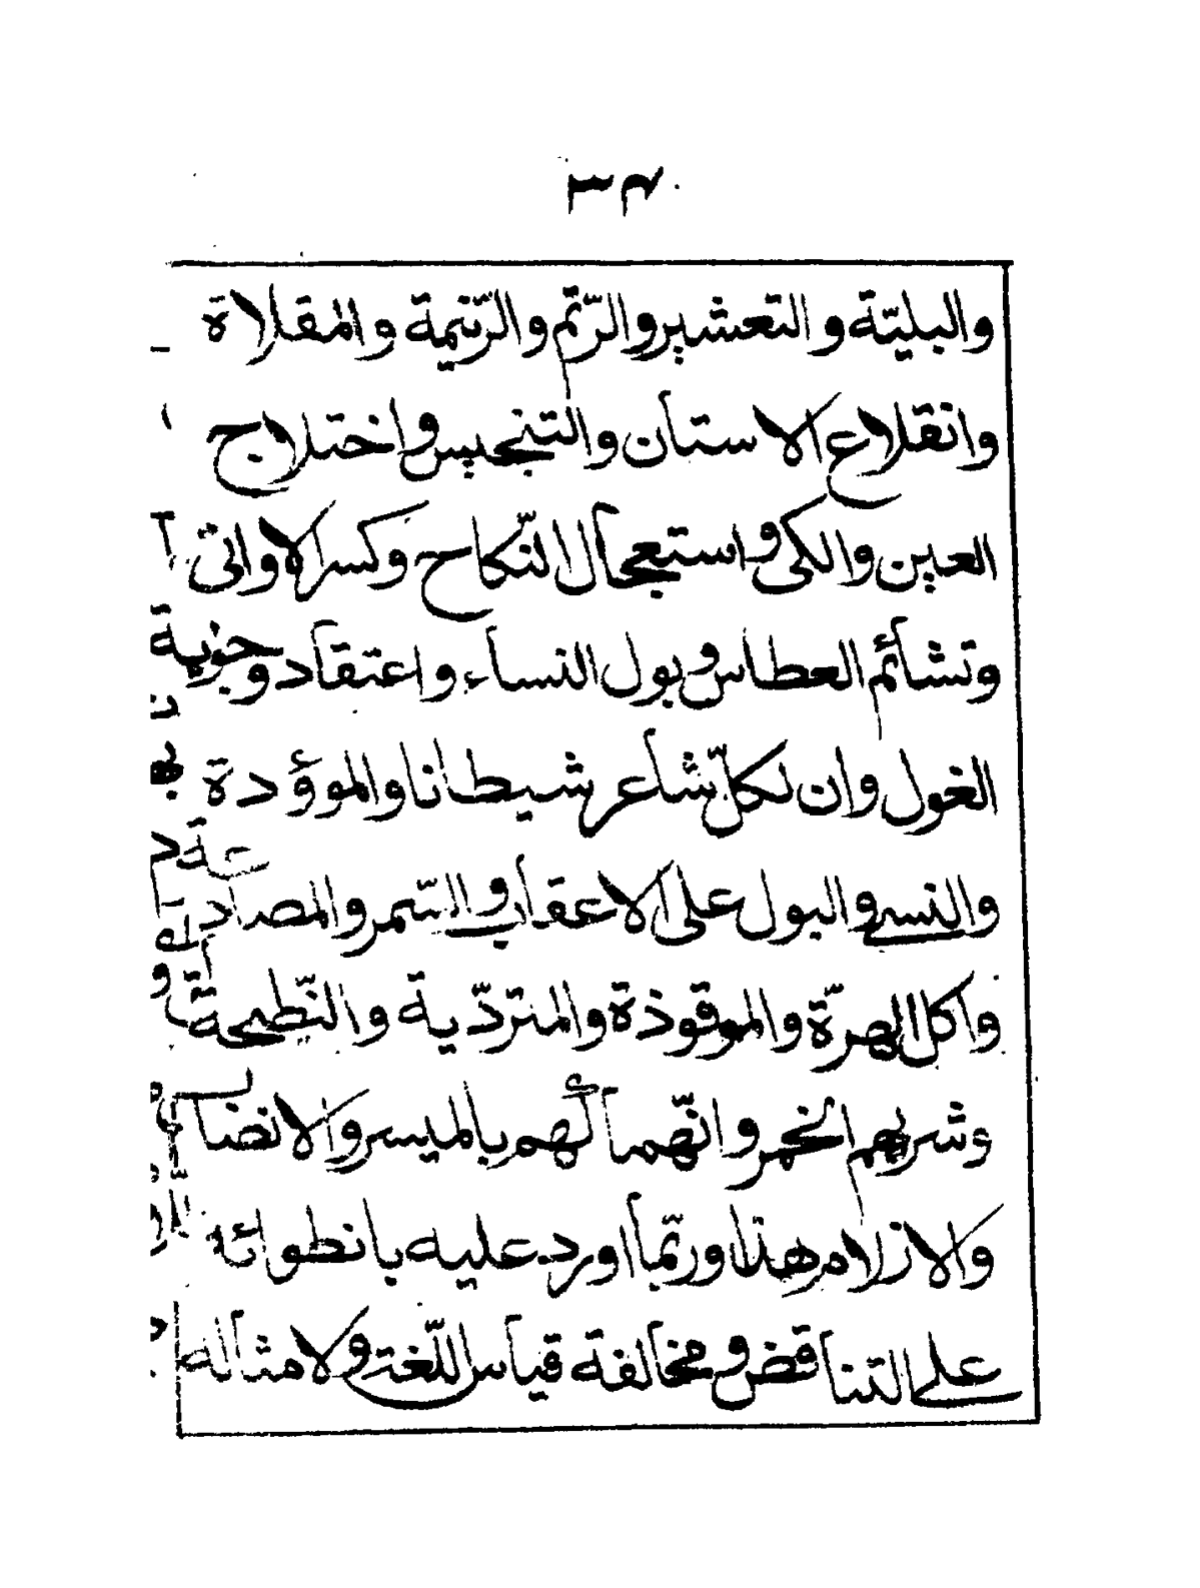 ٣٣
والبليّة والتعشير والرّتم والرّتيمة والمقلاة
وانقلاع الاسنان والتنجيس واختلاج
العين والكى واستعجال النّكاح وكسر الاوانى
وتشأئم العطاس وبول النساء واعتقاد وجوبية
الغول وان لكلّ شاعر شيطانا والموؤدة
والنسى والبول على الاعقاب والسّمر والمصادرة
واكل الهرّة والموقوذة والمتردّية والنّطيحة
وشربهم الخمر وانّهماكهم بالميسر والانصاب
والازلام هذا وربّما اورد عليه بانطوائه
على التناقض ومخالفة قياس اللّغة ولامثاله